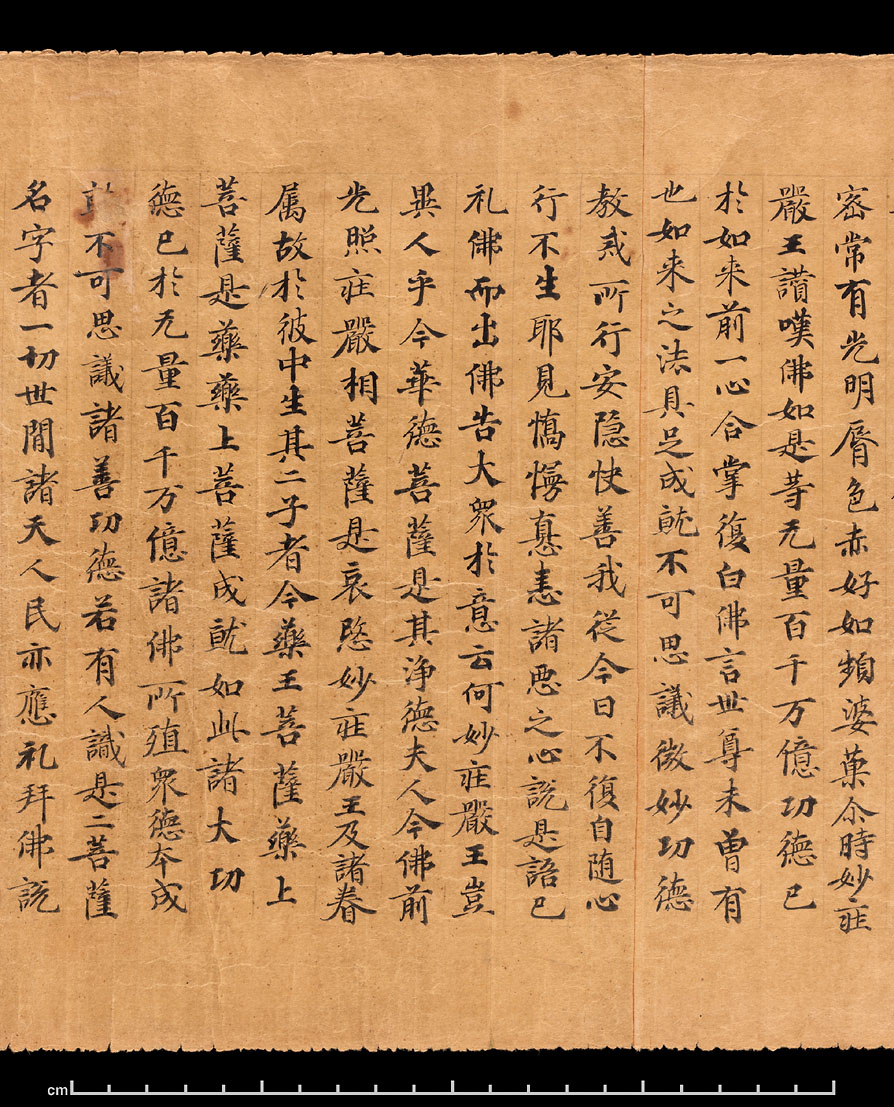 密常有光明脣色赤好如頻婆菓尒時妙疘
嚴王讃嘆佛如是等无量百千万億功德已
於如来前一心合掌復白佛言世尊未曽有
也如来之法具足成就不可思議微妙功德
教戒所行安隐快善我従今日不復自随心
行不生耶見憍慢恚恚諸悪之心說是語已
礼佛而出佛告大衆於意云何妙疘嚴王豈
異人乎今華德菩薩是其浄德夫人今佛前
光照疘嚴相菩薩是哀愍妙疘嚴王及諸眷
属故於彼中生其二子者今藥王菩薩藥上
菩薩是藥藥上菩薩成就如此諸大功
德已於无量百千万億諸佛所殖衆德本成
就不可思議諸善功德若有人識是二菩薩
名字者一切世間諸天人民亦應礼拜佛說
cm